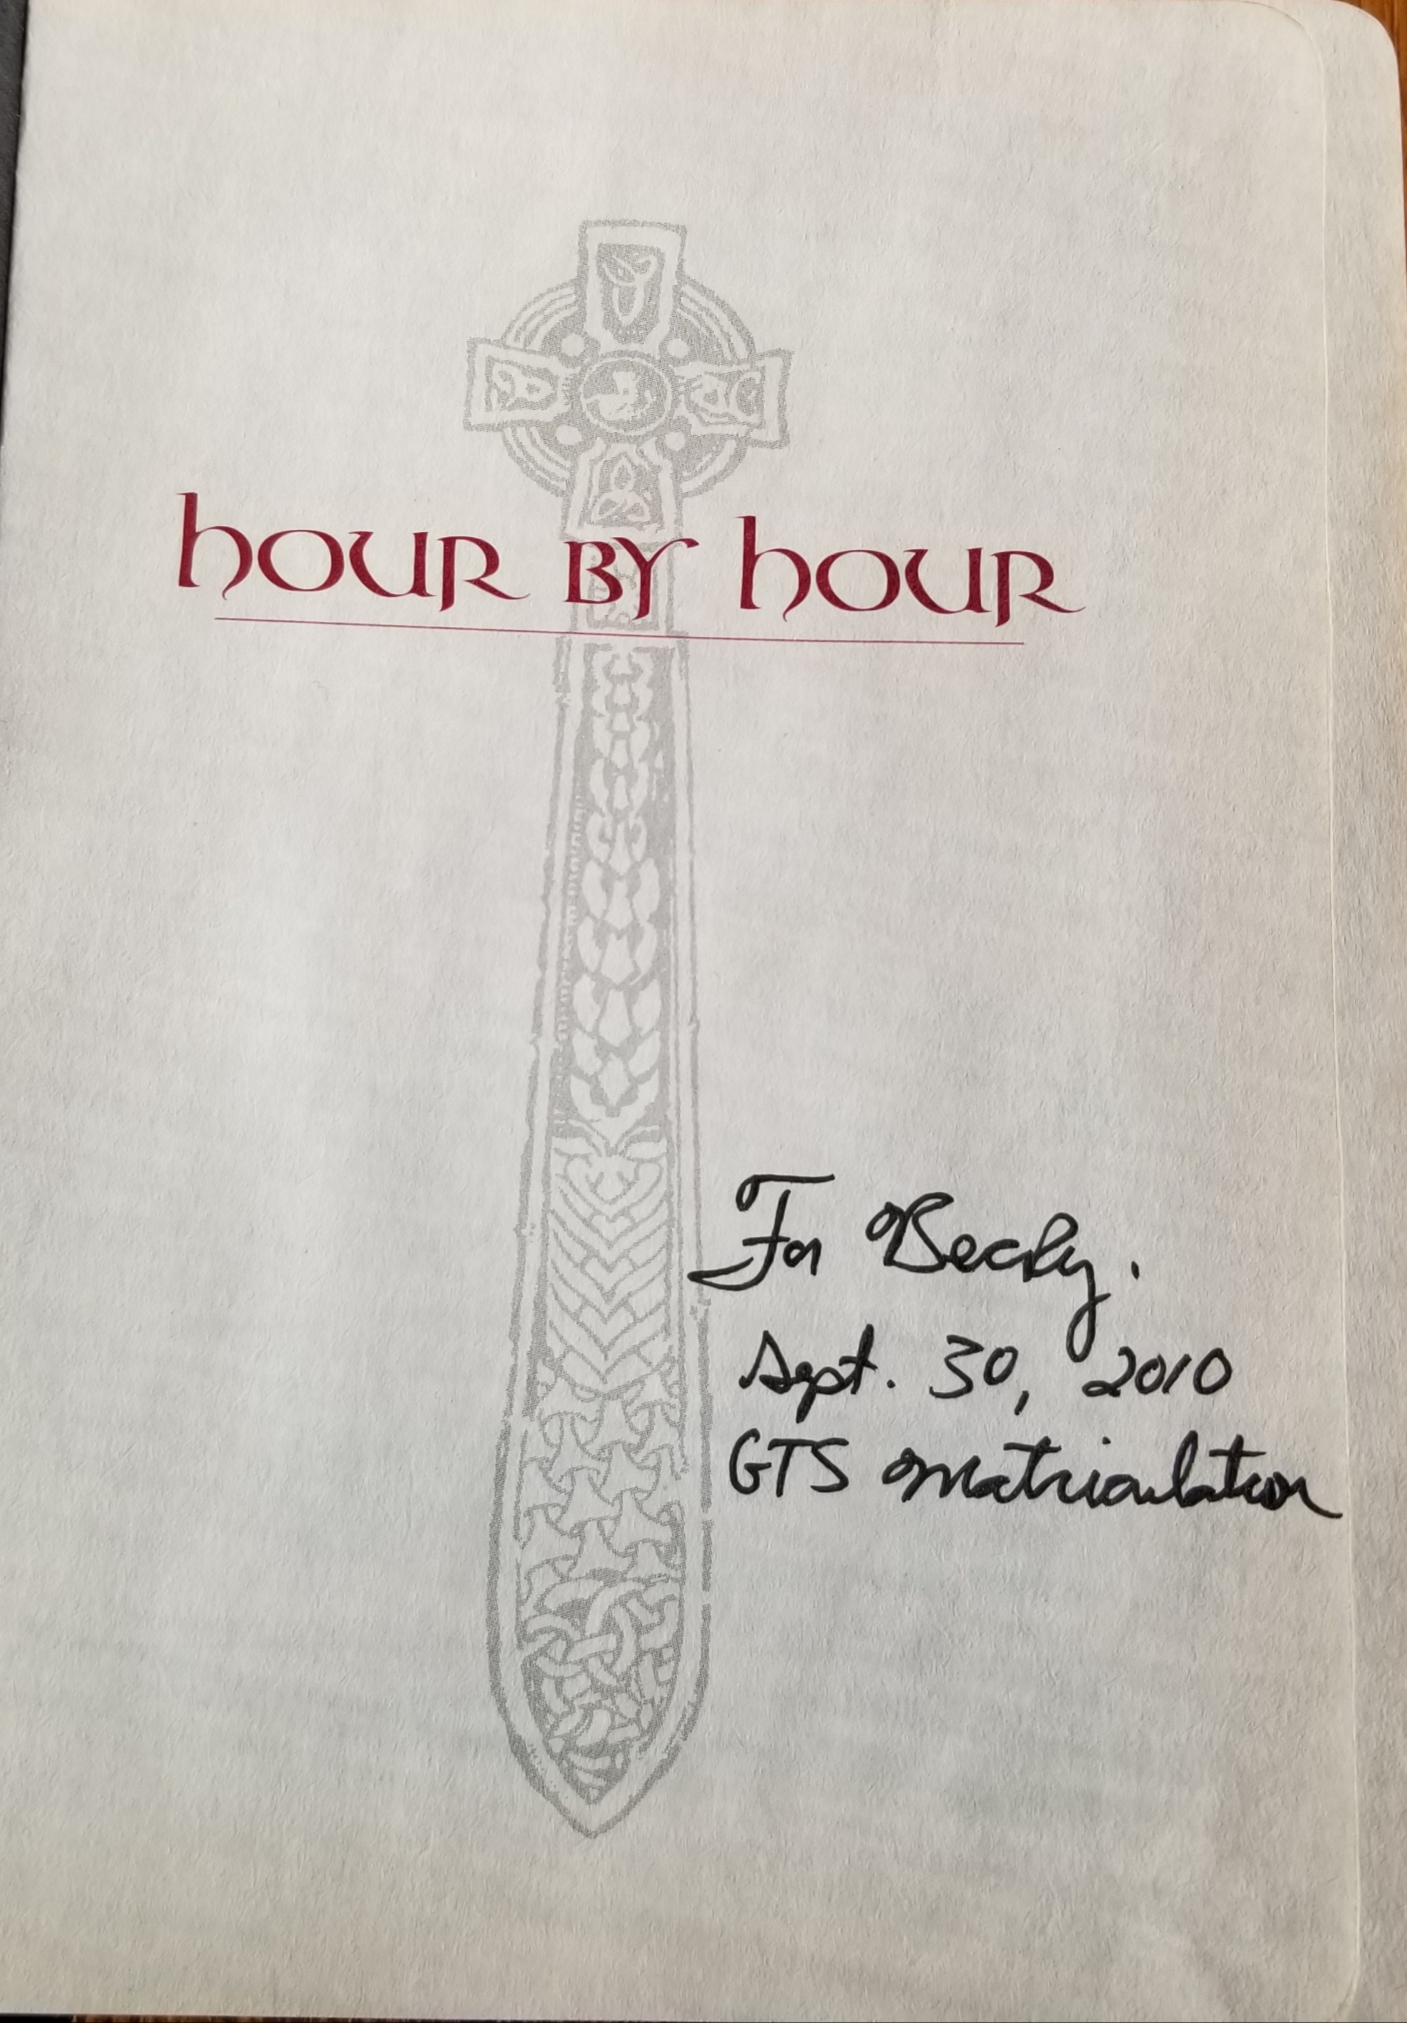 hour by hour
For Becky.
Sept. 30, 2010
GTS Matriculation